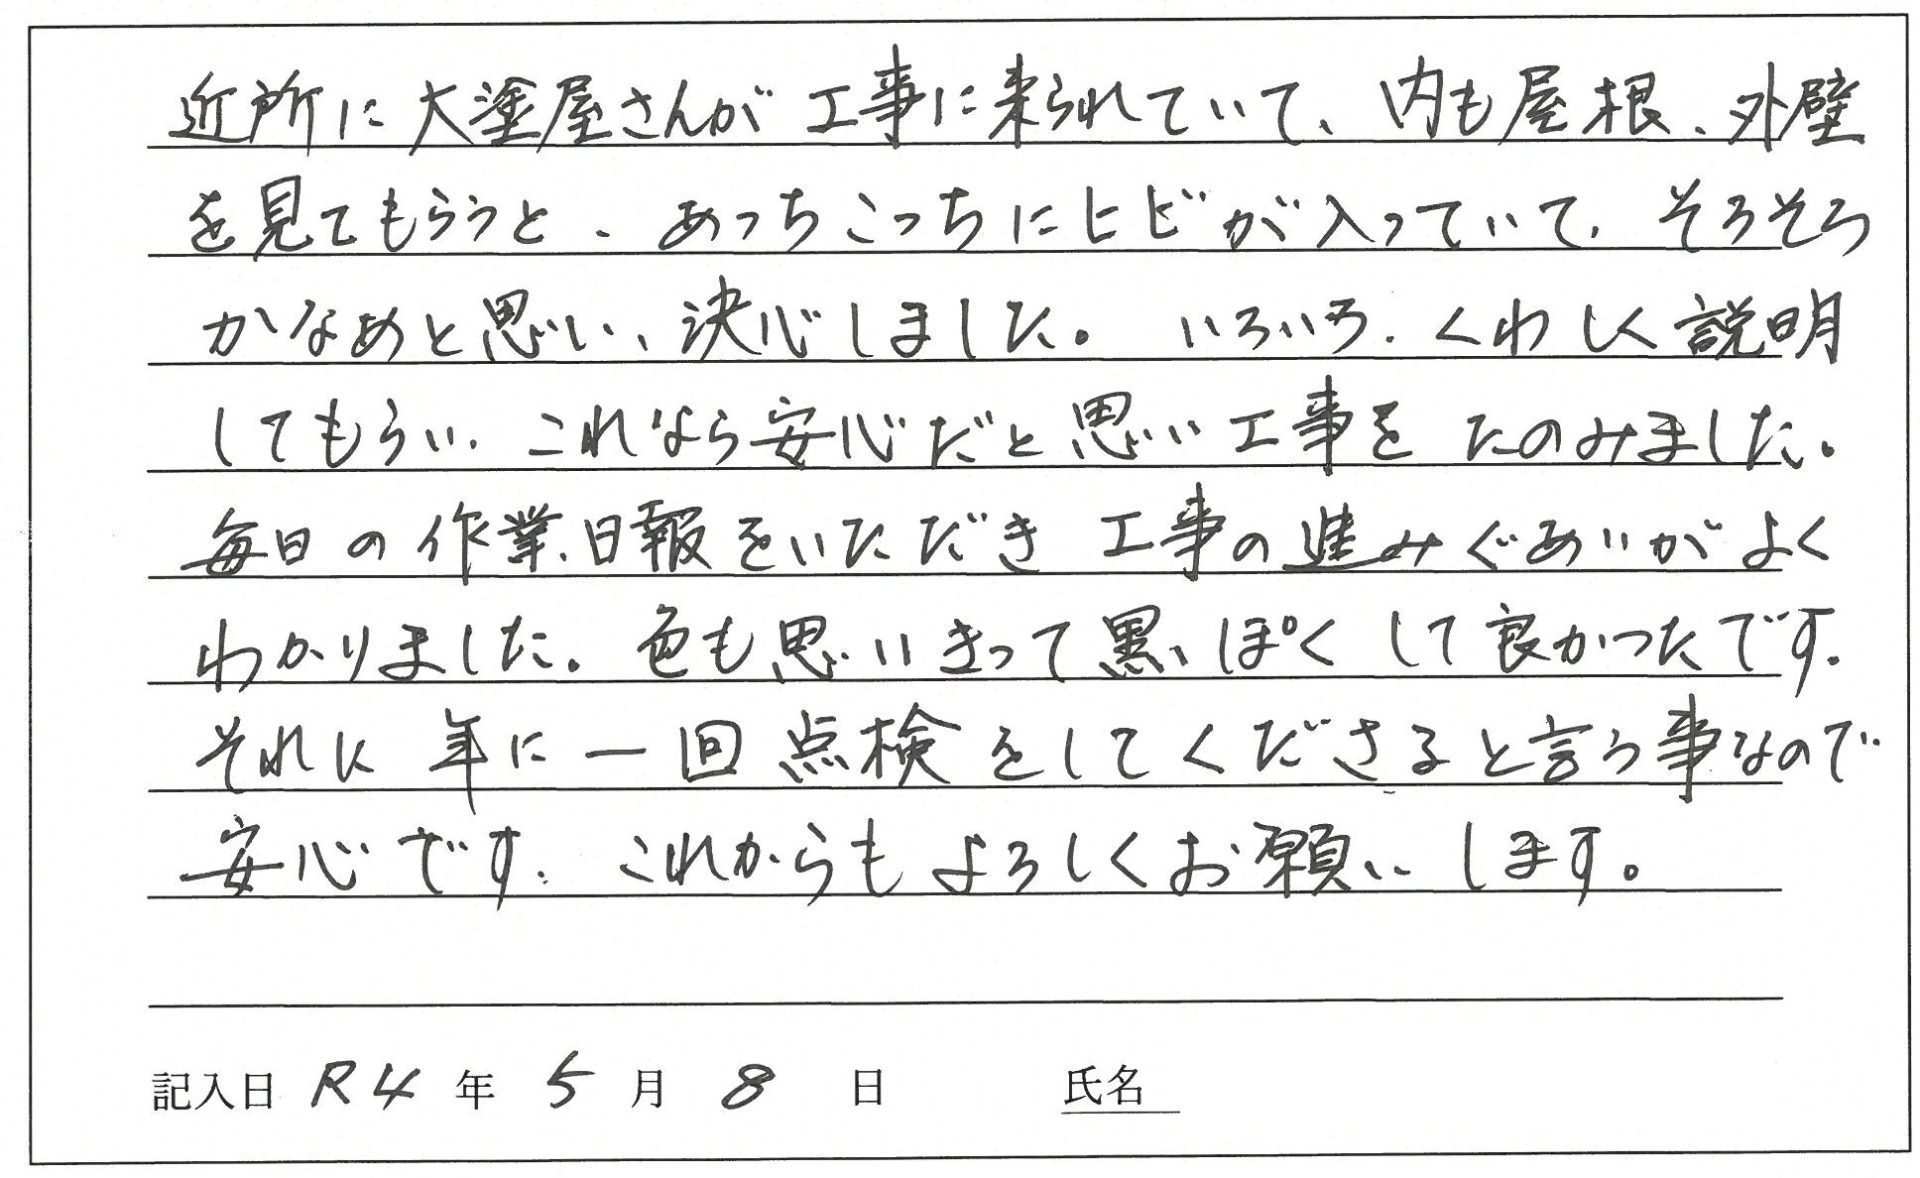 近所に大塗屋さんが工事に来られていて、内も屋根、外壁
を見てもらうと、あっちこっちにヒビが入っていて、そろそろ
かなあと思い、決心しました。 いろいろ、くわしく説明
してもらい、これなら安心だと思い工事をたのみました。
毎日の作業、日報をいただき工事の進みぐあいがよく
わかりました。色も思いきって黒っぽくして良かったです。
それに年に一回点検をしてくださると言う事なので
安心です。これからもよろしくお願いします。
記入日 R4 年 5 月 8 日 氏名